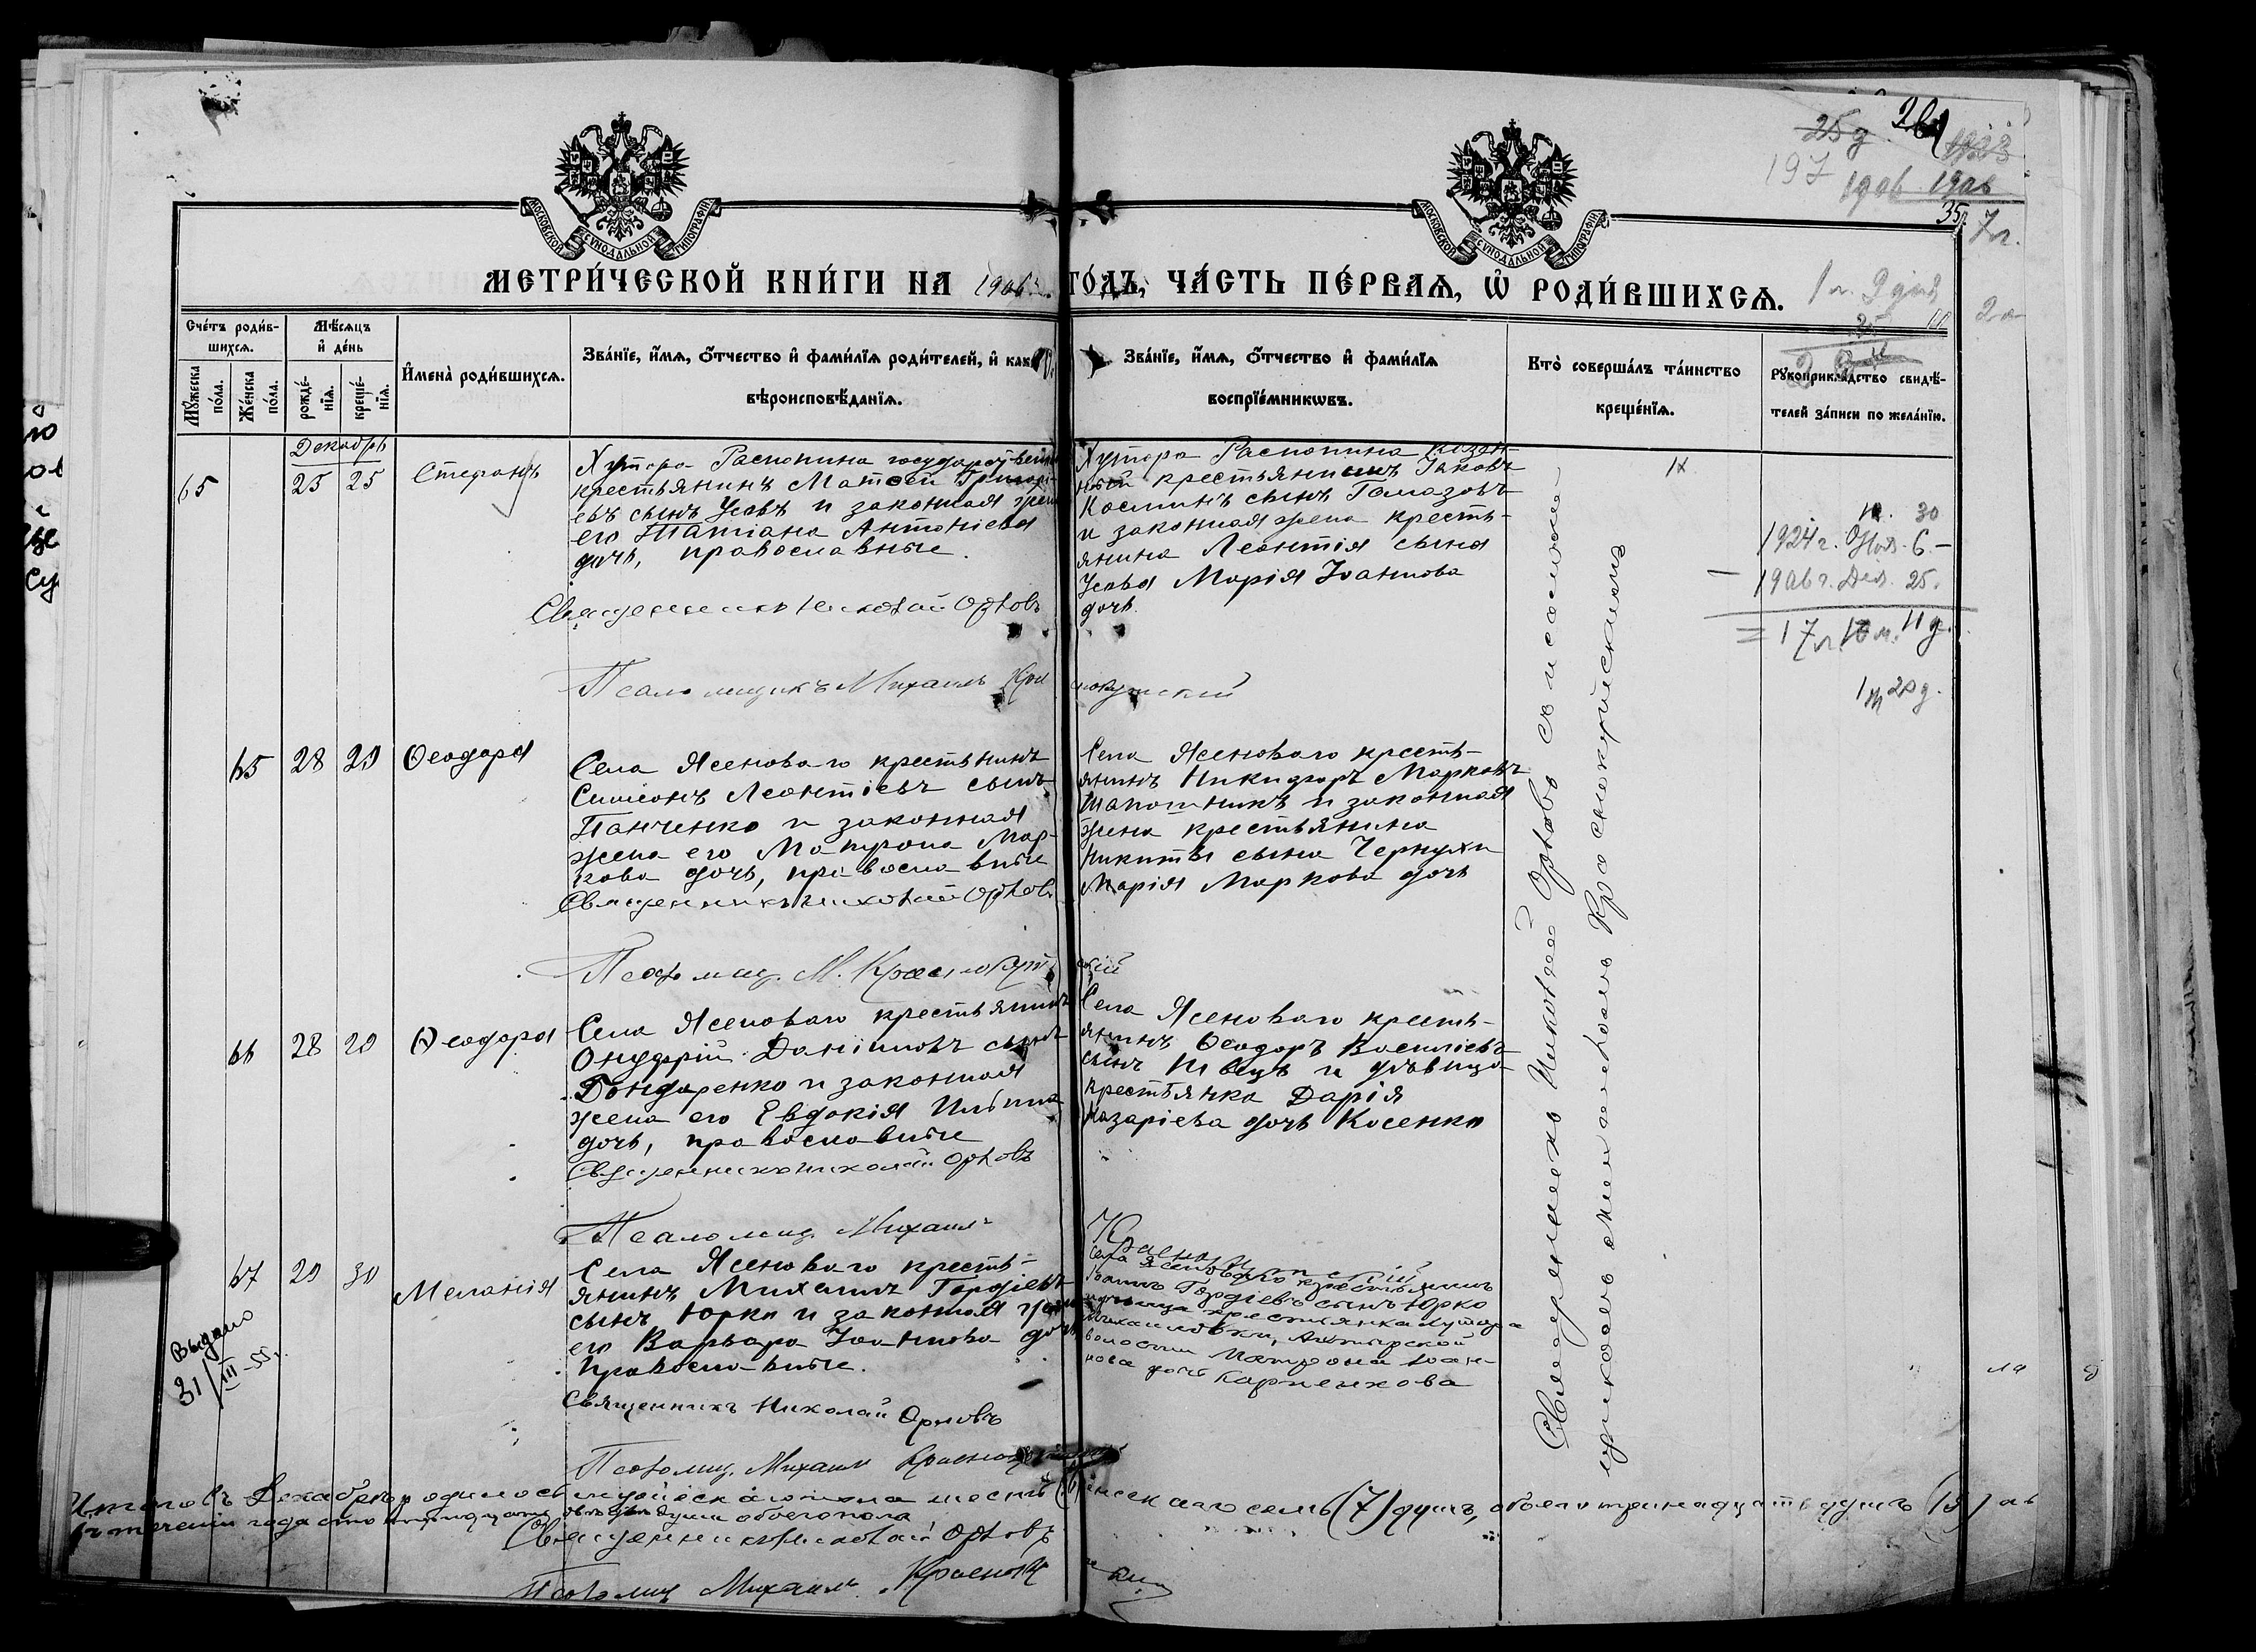 197
1906 1906
35л.
7л.
МОСКОВСКОЙ СѴНОДАЛЬНОЙ ТИПОГРАФІИ
МОСКОВСКОЙ СѴНОДАЛЬНОЙ ТИПОГРАФІИ
МЕТРИ́ЧЕСКОЙ КНИ́ГИ НА 1906 ГО́ДЪ, ЧА́СТЬ ПЕ́РВАѦ, Ѡ҆ РОДИ́ВШИХСѦ.
Сче́тъ роди́в-
шихсѧ.
Мѹ́жеска по́ла.
Же́нска по́ла.
Мѣ́сѧцъ и҆ де́нь
рожде́-нїѧ.
креще́-нїѧ.
И҆мена̀ роди́вшихсѧ.
Зва́нїе, и҆́мѧ, ѻ҆́тчество и҆ фами́лїѧ роди́телей, и҆ как
вѣроисповѣ́данїѧ.
Зва́нїе, и҆́мѧ, ѻ҆́тчество и҆ фами́лїѧ
воспрїе́мниковъ.
Кто̀ соверша́лъ та́инство
креще́нїѧ.
Рѹкоприкла́дство свидѣ́-
телей за́писи по жела́нїю.
Декабрь
65 25 25 Стефанъ
Хутора Распопина государствен
крестьянинъ Матѳей Григорі-
евъ сынъ Усовъ и законная жена
его Татіана Антоніева
дочь, православные.
Священникъ Николай Орловъ
Псаломщикъ Михаилъ Краснокутский
Хутора Распопина козен-
ный крестьянинъ Іаковъ
Косминъ сынъ Гамазовъ
и законная жена кресть-
янина Леонтія сына
Усова Марія Іоаннова
дочь.
30
1924 г. 6.—
1906 г. Дек. 25.
= 17 л. 10 м. 11 д.
65 28 29 Ѳеодора
Села Ясеноваго крестьянинъ
Симеонъ Леонтіевъ сынъ
Панченко и законная
жена его Матрона Мар-
кова дочь, православные
Священникъ Николай Орловъ
Псаломщ. М. Краснокутскій
Села Ясеноваго кресть-
янинъ Никифоръ Марковъ
Шапошникъ и законная
жена крестьянина
Никиты сына Чернухи
Марія Маркова дочь
66 28 29 Ѳеодора
Села Ясеноваго крестьянинъ
Онуфрій Даніиловъ сынъ
Бондаренко и законная
жена его Евдокія Ильина
дочь, православные
Священникъ Николай Орловъ
Псаломщ. Михаилъ Краснокутскій
Села Ясеноваго кресть-
янинъ Ѳеодоръ Василіевъ
сынъ Швецъ и дѣвица
крестьянка Дарія
Назаріева дочь Косенко
67 29 30 Меланія
Села Ясеноваго кресть-
янинъ Михаилъ Гордіевъ
сынъ Юрко и законная жена
его Варвара Іоаннова дочь
православные.
Священникъ Николай Орловъ
Псаломщ. Михаилъ Краснокутскій
Села Ясеноваго крестьянинъ
Іоаннъ Гордіевъ сынъ Юрко
дѣвица крестьянка хутора
Михайловки,
волости Матрона Іоан-
нова дочь Карпенкова
Священникъ Николай Орловъ съ псалом-
щикомъ Михаиломъ Краснокутскимъ
Выдано
31/III-55 г.
Итого въ Декабрѣ родилось мужеска пола шесть (6) женскаго семь (7) душъ, обоего тринадцать душъ (13) а
въ теченіи года сто тридцать души обоего пола
Священникъ Николай Орловъ
Псаломщ Михаилъ Краснокутскій